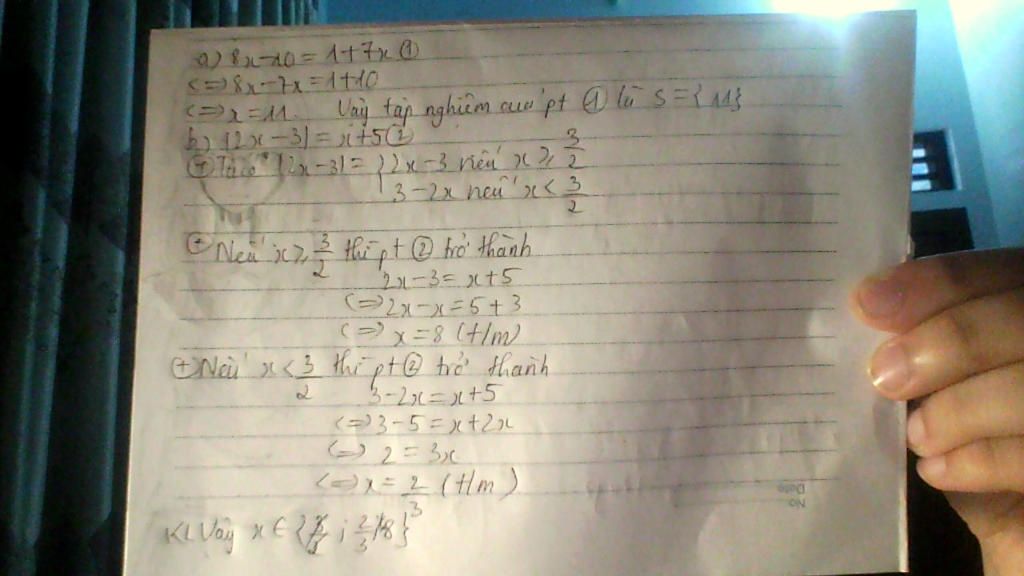 a) 8x-10 = 1+7x ①
<=> 8x-7x = 1+10
<=> x = 11. Vậy tập nghiệm của pt ① là S = {11}
b) |2x-3| = x+5 ②
⊕ Ta có |2x-3| = { 2x-3 nếu x ≥ 3/2
3-2x nếu x < 3/2
⊕ Nếu x ≥ 3/2 thì pt ② trở thành
2x-3 = x+5
<=> 2x-x = 5+3
<=> x = 8 (t/m)
⊕ Nếu x < 3/2 thì pt ② trở thành
3-2x = x+5
<=> 3-5 = x+2x
<=> 2 = 3x
<=> x = 2/3 (t/m)
KL Vậy x ∈ { ; 2/3 ; 8}
No
Date